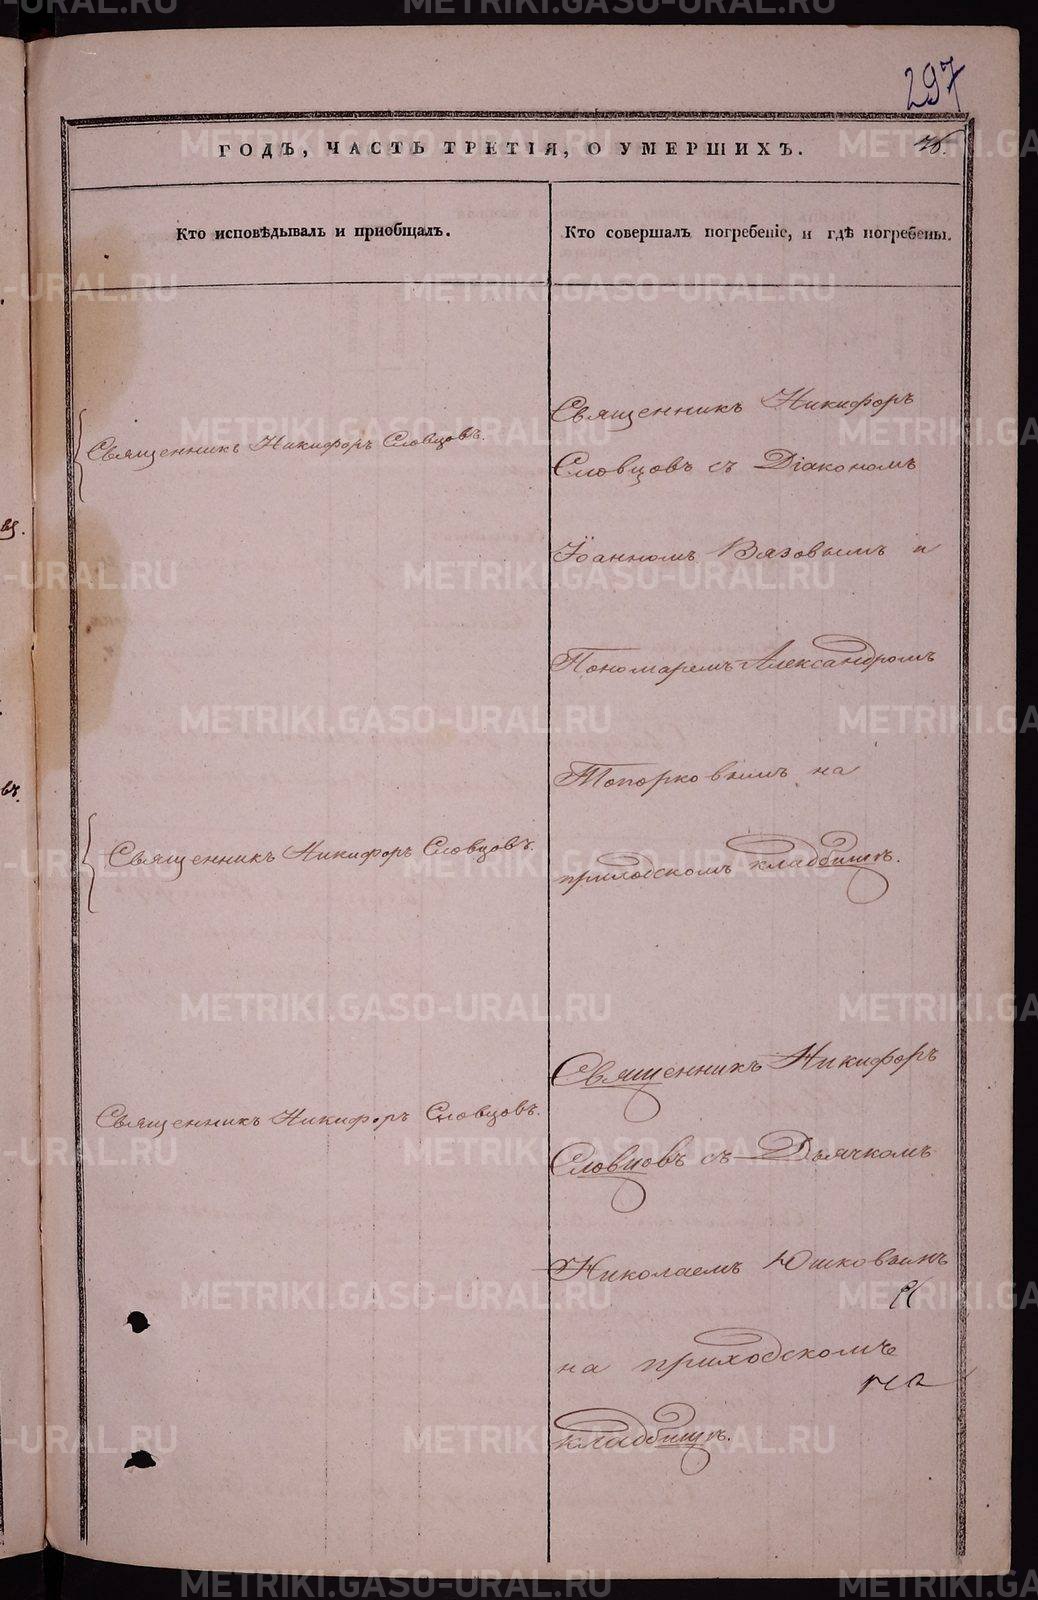 297
ГОДЪ, ЧАСТЬ ТРЕТІЯ, О УМЕРШИХЪ.
Кто исповѣдывалъ и пріобщалъ.
Кто совершалъ погребеніе, и гдѣ погребены.
Священникъ Никифоръ Словцовъ.
Священникъ Никифоръ
Словцовъ съ Діакономъ
Іоанномъ Вязовымъ и
Пономаремъ Александромъ
Топорковымъ на
приходскомъ кладбищѣ.
Священникъ Никифоръ Словцовъ.
Священникъ Никифоръ Словцовъ.
Священникъ Никифоръ
Словцовъ съ Дьячкомъ
Николаемъ Юшковымъ
на приходскомъ
кладбищѣ.
на
METRIKI.GASO-URAL.RU